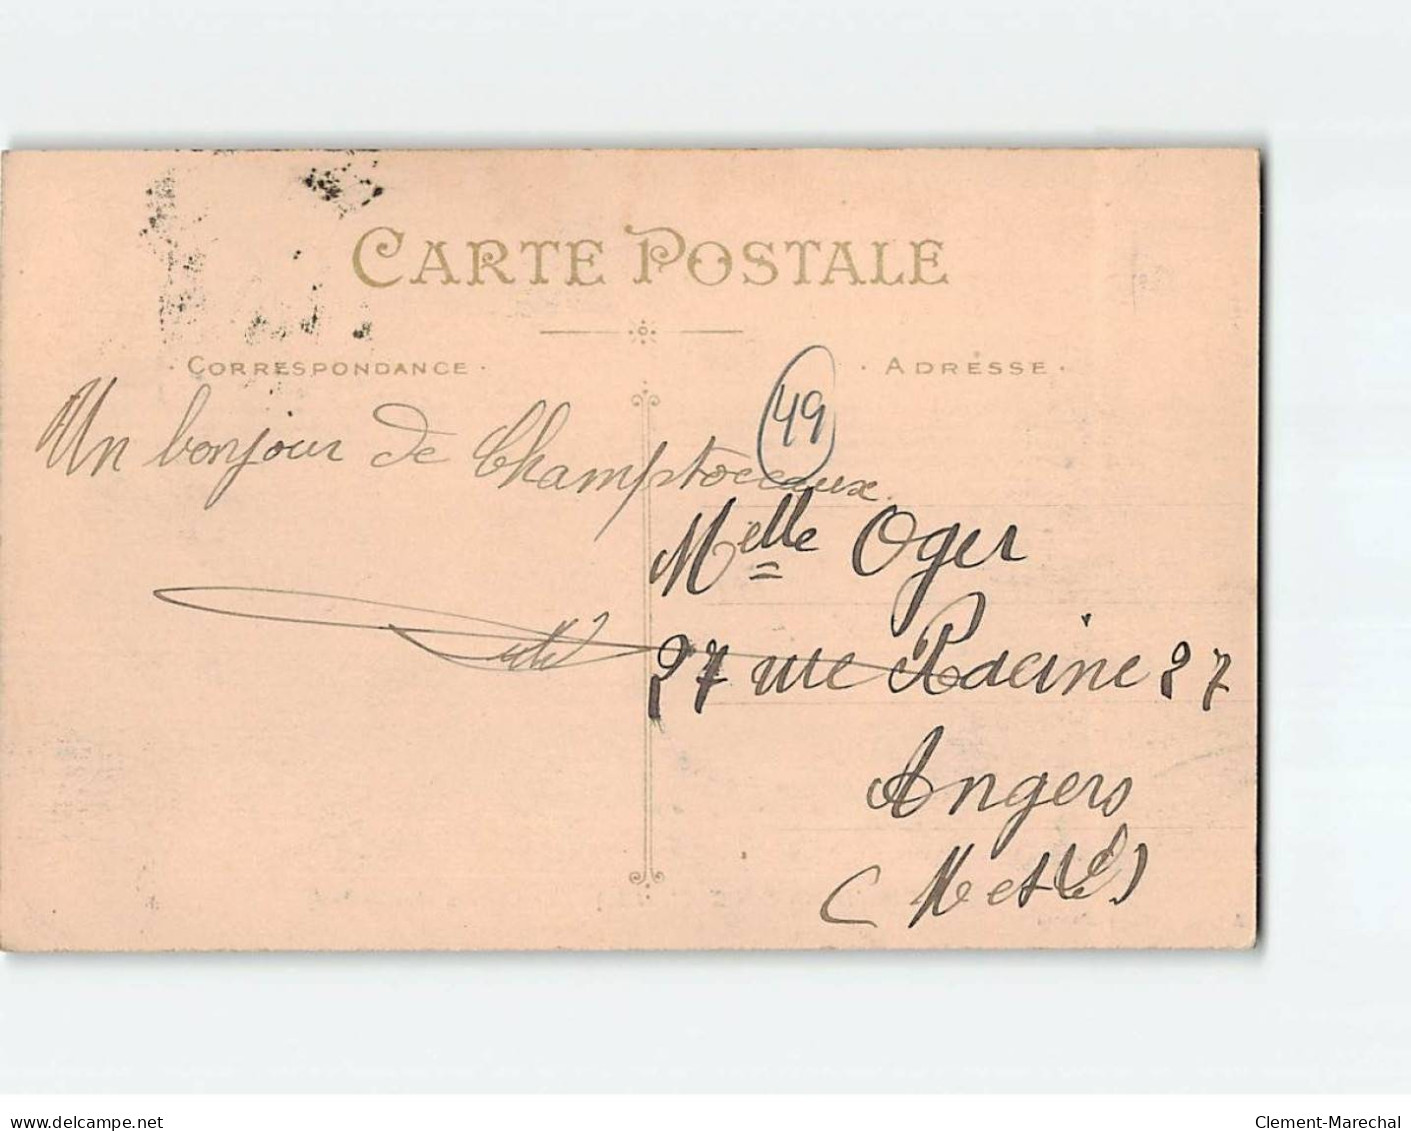 CARTE POSTALE
· CORRESPONDANCE ·
Un bonjour de Champtoceaux.
· ADRESSE ·
49
Melle Oger
27 rue Racine 27
Angers
(M et L)
delcampe.net
Clement-Marechal